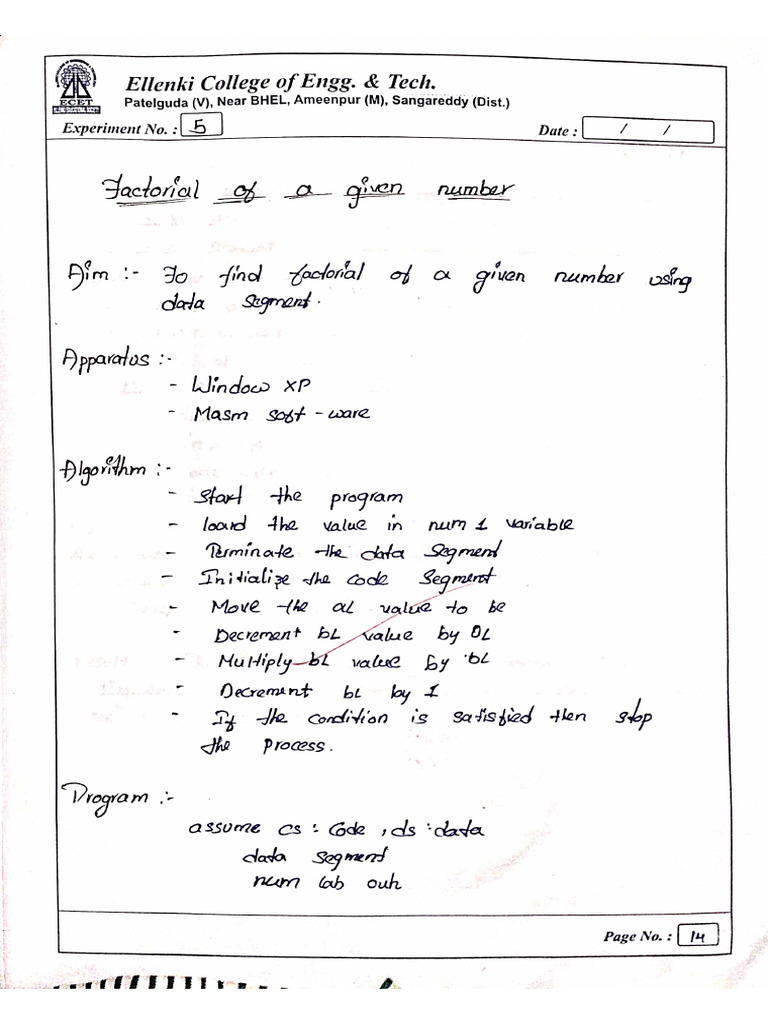 ECET
Ellenki College of Engg. & Tech.
Patelguda (V), Near BHEL, Ameenpur (M), Sangareddy (Dist.)
Experiment No. : 5
Date : / /
Factorial of a given number
Aim :- To find factorial of a given number using
data segment.
Apparatus :-
- Window XP
- Masm soft-ware
Algorithm :-
- Start the program
- load the value in num 1 variable
- Terminate the data segment
- Initialize the code segment
- Move the al value to be
- Decrement bL value by 0L
- Multiply bL value by bL
- Decrement bL by 1
- If the condition is satisfied then stop
the process.
Program :-
assume cs : Code , ds : data
data segment
num lab ouh
Page No. : 14